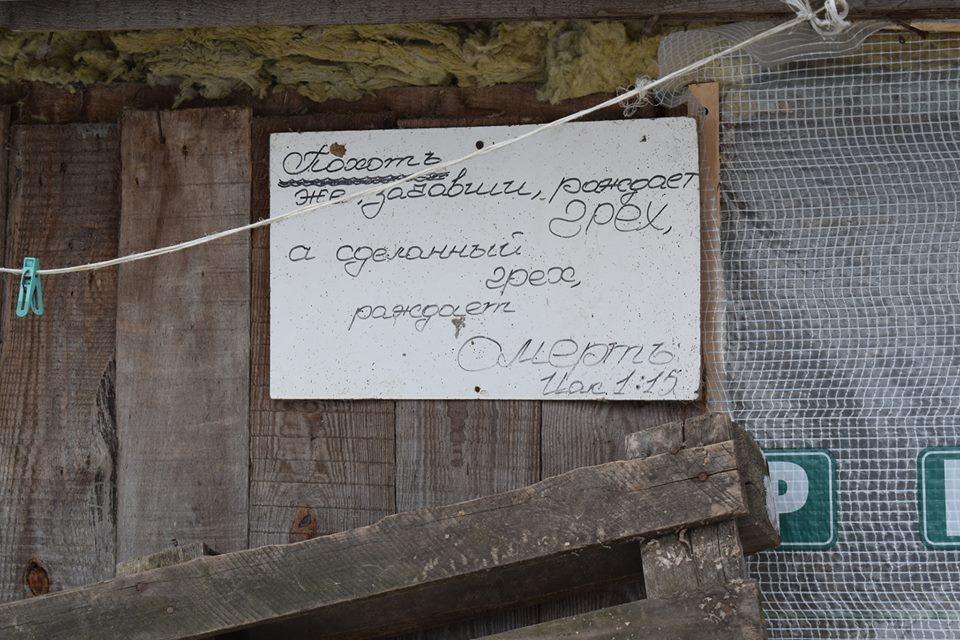 Похоть
же, зачавши, раждает
грех,
а сделанный
грех,
раждает
Смерть
Иак. 1:15
P